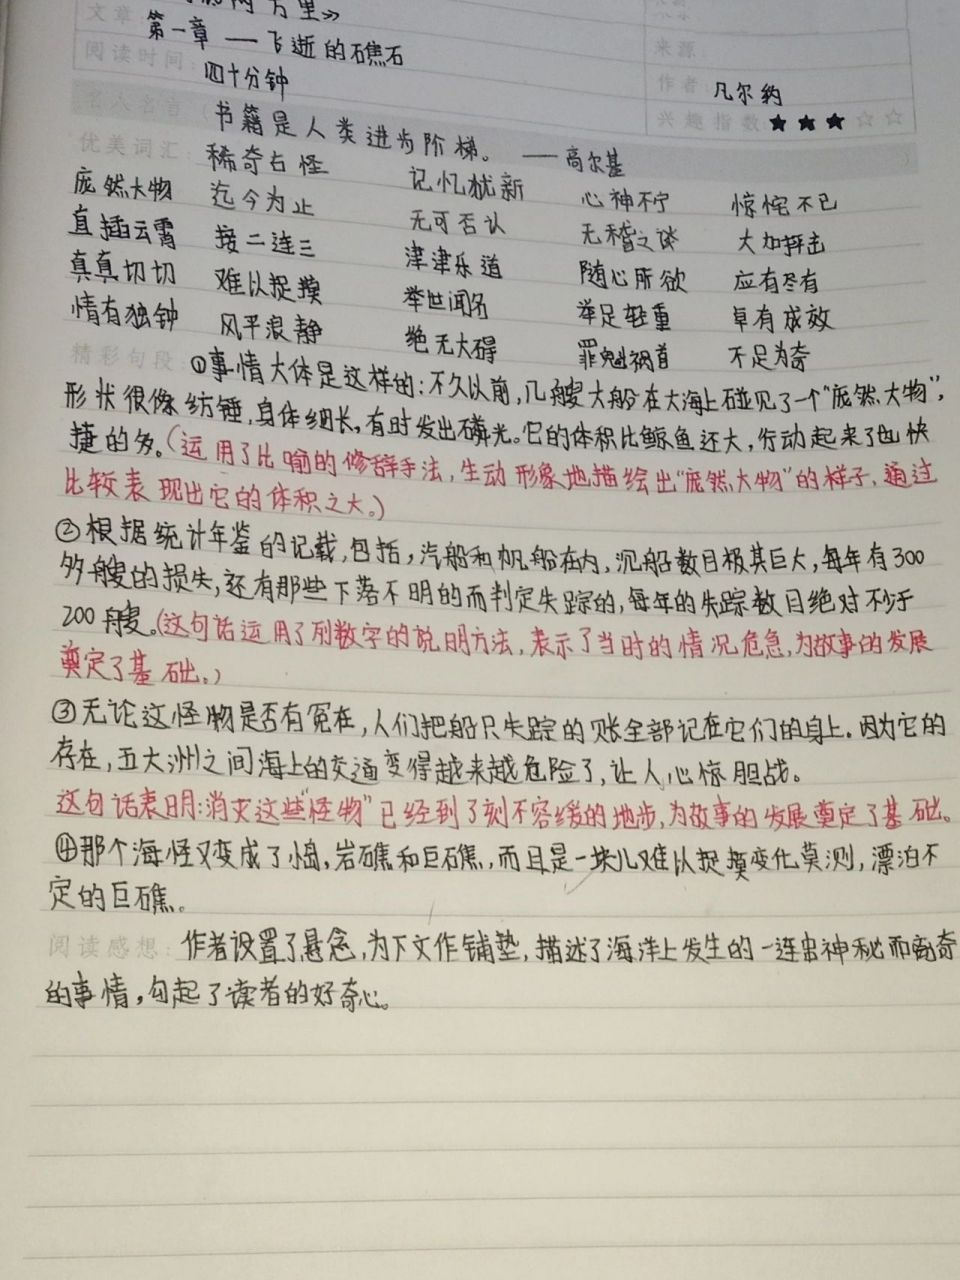 两万里》
文章
第一章 — 飞逝的礁石
来源:
阅读时间: 四十分钟
作者: 凡尔纳
兴趣指数: ★★★☆☆
名人名言 书籍是人类进步阶梯。 ——高尔基
优美词汇 稀奇古怪 记忆犹新 心神不宁 惊诧不已
庞然大物 迄今为止 无可否认 无稽之谈 大加抨击
直插云霄 接二连三 津津乐道 随心所欲 应有尽有
真真切切 难以捉摸 举世闻名 举足轻重 卓有成效
情有独钟 风平浪静 绝无大碍 罪魁祸首 不足为奇
精彩句段: ①事情大体是这样的:不久以前,几艘大船在大海上碰见了一个“庞然大物”,
形状很像纺锤,身体细长,有时发出磷光。它的体积比鲸鱼还大,行动起来了也快
捷的多。(运用了比喻的修辞手法,生动形象地描绘出“庞然大物”的样子,通过
比较表现出它的体积之大。)
②根据统计年鉴的记载,包括,汽船和帆船在内,沉船数目极其巨大,每年有300
多艘的损失,还有那些下落不明的而判定失踪的,每年的失踪数目绝对不少于
200艘。(这句话运用了列数字的说明方法,表示了当时的情况危急,为故事的发展
奠定了基础。)
③无论这怪物是否有冤在,人们把船只失踪的账全部记在它们的身上。因为它的
存在,五大洲之间海上的交通变得越来越危险了,让人心惊胆战。
这句话表明:消灭这些“怪物”已经到了刻不容缓的地步,为故事的发展奠定了基础。
④那个海怪又变成了小岛,岩礁和巨礁,而且是一块儿难以捉摸变化莫测,漂泊不
定的巨礁。
阅读感想: 作者设置了悬念,为下文作铺垫,描述了海洋上发生的一连串神秘而离奇
的事情,勾起了读者的好奇心。